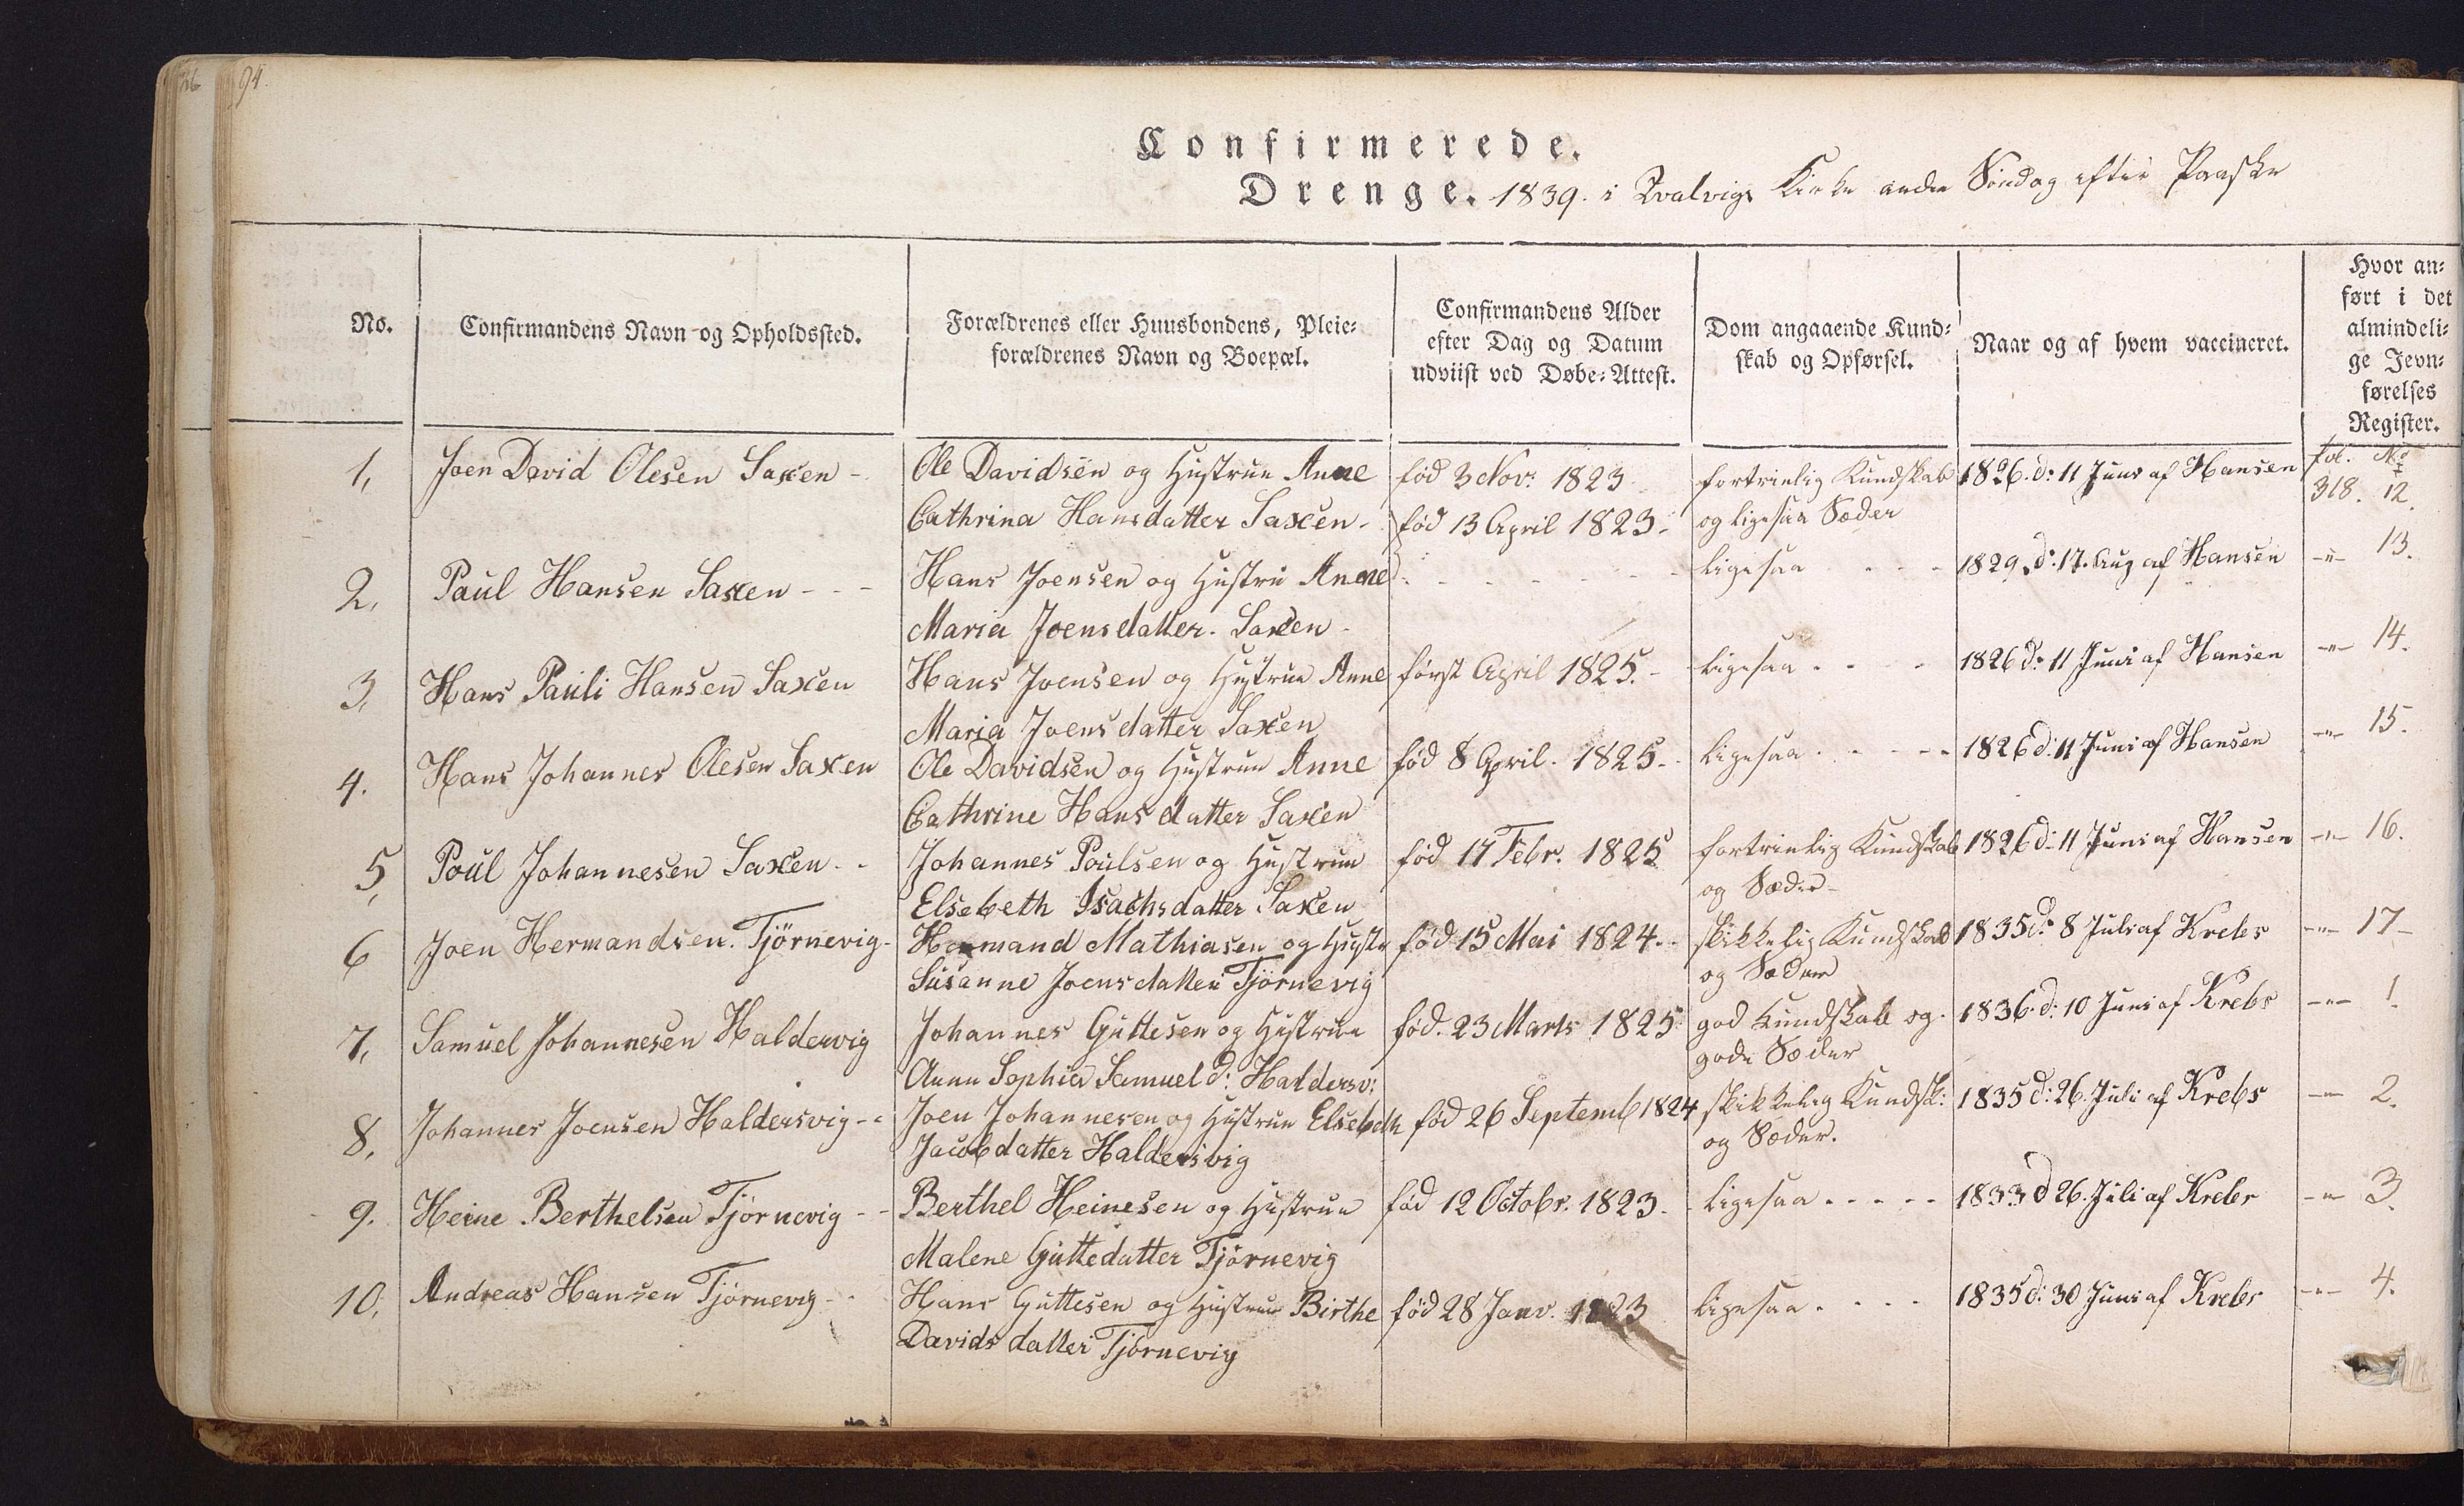 94.
Confirmerede.
Drenge. 1839. i Qvalvigs Kirke anden Söndag efter Paaske
No.
Confirmandens Navn og Opholdssted.
Forældrenes eller Huusbondens, Pleie-
forældrenes Navn og Boepæl.
Confirmandens Alder
efter Dag og Datum
udviist ved Døbe-Attest.
Dom angaaende Kund-
skab og Opførsel.
Naar og af hvem vaccineret.
Hvor an-
ført i det
almindeli-
ge Jevn-
førelses
Register.
fol. No
1, Joen David Olesen Saxen - Ole Davidsen og Hustrue Anne fød 3 Nov: 1823 fortrinlig Kundskab 1826. d: 11 Juni af Hansen 318. 12.
Cathrina Hansdatter Saxen - fød 13 April 1823. og ligesaa Sæder
2, Paul Hansen Saxen - - - Hans Joensen og Hustru Anne ligesaa - - - 1829. d: 17. Aug af Hansen -"- 13.
Maria Joensdatter. Saxen -
3, Hans Pauli Hansen Saxen Hans Joensen og Hustrue Anne først April 1825. - ligesaa - - - 1826 d: 11 Juni af Hansen -"- 14.
Maria Joensdatter Saxen
4. Hans Johannes Olesen Saxen Ole Davidsen og Hustrue Anne fød 8 April. 1825. - ligesaa - - - - 1826 d: 11 Juni af Hansen -"- 15.
Cathrine Hansdatter Saxen
5, Poul Johannesen Saxen - - Johannes Poulsen og Hustrue fød 17 Febr. 1825 fortrinlig Kundskab 1826 d: 11 Juni af Hansen -"- 16.
Elsebeth Isachsdatter Saxen og Sæder -
6 Joen Hermandsen. Tjörnevig - Hermand Mathiasen og Hustr fød 15 Mai 1824. - skikkelig Kundskab 1835 d: 8 Juli af Krebs -"- 17 -
Susanne Joensdatter Tjörnevig og Sæder
7, Samuel Johannesen Haldervig Johannes Guttesen og Hustrue fød. 23 Marts 1825 god Kundskab og 1836. d: 10 Juni af Krebs -"- 1.
Anna Sophia Samuel d: Haldersv: gode Sæder
8, Johannes Joensen Haldersvig - - Joen Johannesen og Hustrue Elsebeth fød 26 Septemb 1824 skikkelig Kundsk: 1835 d: 26. Juli af Krebs -"- 2.
Jacobdatter Haldersvig og Sæder.
9. Heine Berthelsen Tjörnevig - - Berthel Heinesen og Hustrue fød 12 Octobr. 1823. ligesaa - - - - - 1833 d 26. Juli af Krebs -"- 3.
Malene Guttedatter Tjörnevig
10, Andreas Hansen Tjörnevig - - Hans Guttesen og Hustrue Birthe fød 28 Janv. 1823 ligesaa - - - - 1835 d: 30 Juni af Krebs -"- 4.
Davidsdatter Tjörnevig